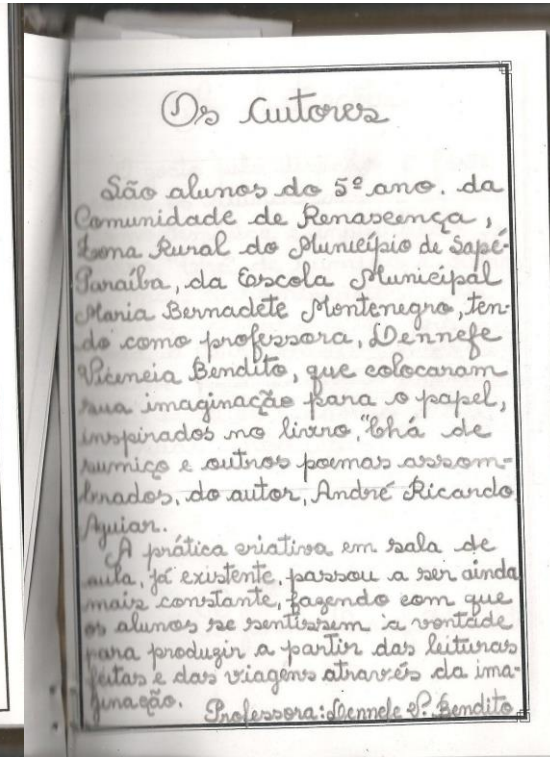 Os Autores
São alunos do 5º ano. da
Comunidade de Renascença,
Zona Rural do Município de Sapé-
Paraíba, da Escola Municipal
Maria Bernadete Montenegro, ten-
do como professora, Dennefe
Vicencia Bendito, que colocaram
sua imaginação para o papel,
inspirados no livro, "Chá de
sumiço e outros poemas assom-
brados, do autor, André Ricardo
Aguiar.
A prática criativa em sala de
aula, já existente, passou a ser ainda
mais constante, fazendo com que
os alunos se sentissem à vontade
para produzir a partir das leituras
feitas e das viagens através da ima-
ginação.
Professora: Dennefe V. Bendito